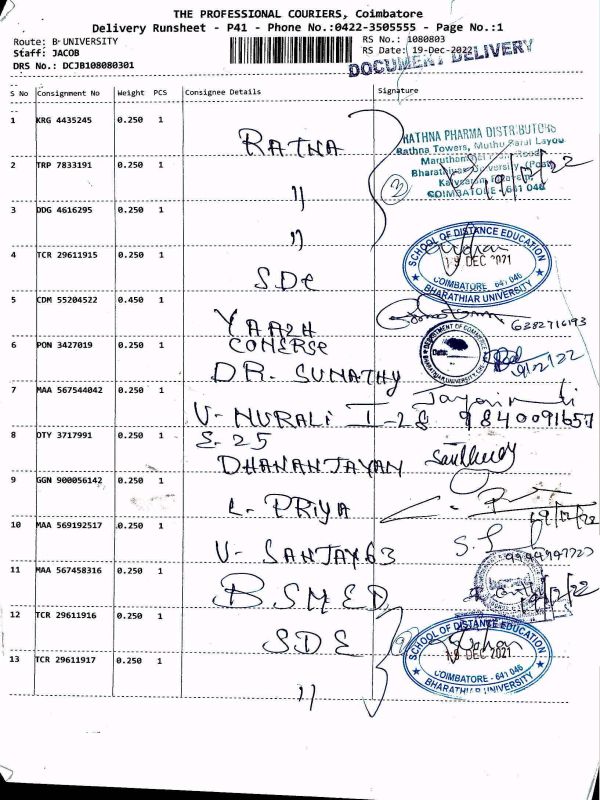 THE PROFESSIONAL COURIERS, Coimbatore
Delivery Runsheet - P41 - Phone No.:0422-3505555 - Page No.:1
Route: B UNIVERSITY
RS No.: 1080803
Staff: JACOB
RS Date: 19-Dec-2022
DRS No.: DCJB108080301
DOCUMENT DELIVERY
S No Consignment No Weight PCS Consignee Details Signature
1 KRG 4435245 0.250 1
RATNA
RATHNA PHARMA DISTRIBUTORS
Rathna Towers, Muthu Layou
2 TRP 7833191 0.250 1
"
2
COIMBATORE - 641 046
3 DDG 4616295 0.250 1
"
4 TCR 29611915 0.250 1
SDE
SCHOOL OF DISTANCE EDUCATION
19 DEC 2021
COIMBATORE - 641 046
BHARATHIAR UNIVERSITY
5 CDM 55204522 0.450 1
YAAZH
6382716193
6 PON 3427019 0.250 1
COMERSE
DR. SUNATHY
DEPARTMENT OF COMMERCE
Date:
7 MAA 567544042 0.250 1
V- MURALI I-28 9840091657
8 OTY 3717991 0.250 1
E. 25
DHANANJAYAN
9 GGN 900056142 0.250 1
L- PRIYA
19/12/22
10 MAA 569192517 0.250 1
V- SANJAY 63
11 MAA 567458316 0.250 1
BSMED
19/12/22
12 TCR 29611916 0.250 1
SDE
2
SCHOOL OF DISTANCE EDUCATION
19 DEC 2021
COIMBATORE - 641 046
BHARATHIAR UNIVERSITY
13 TCR 29611917 0.250 1
"